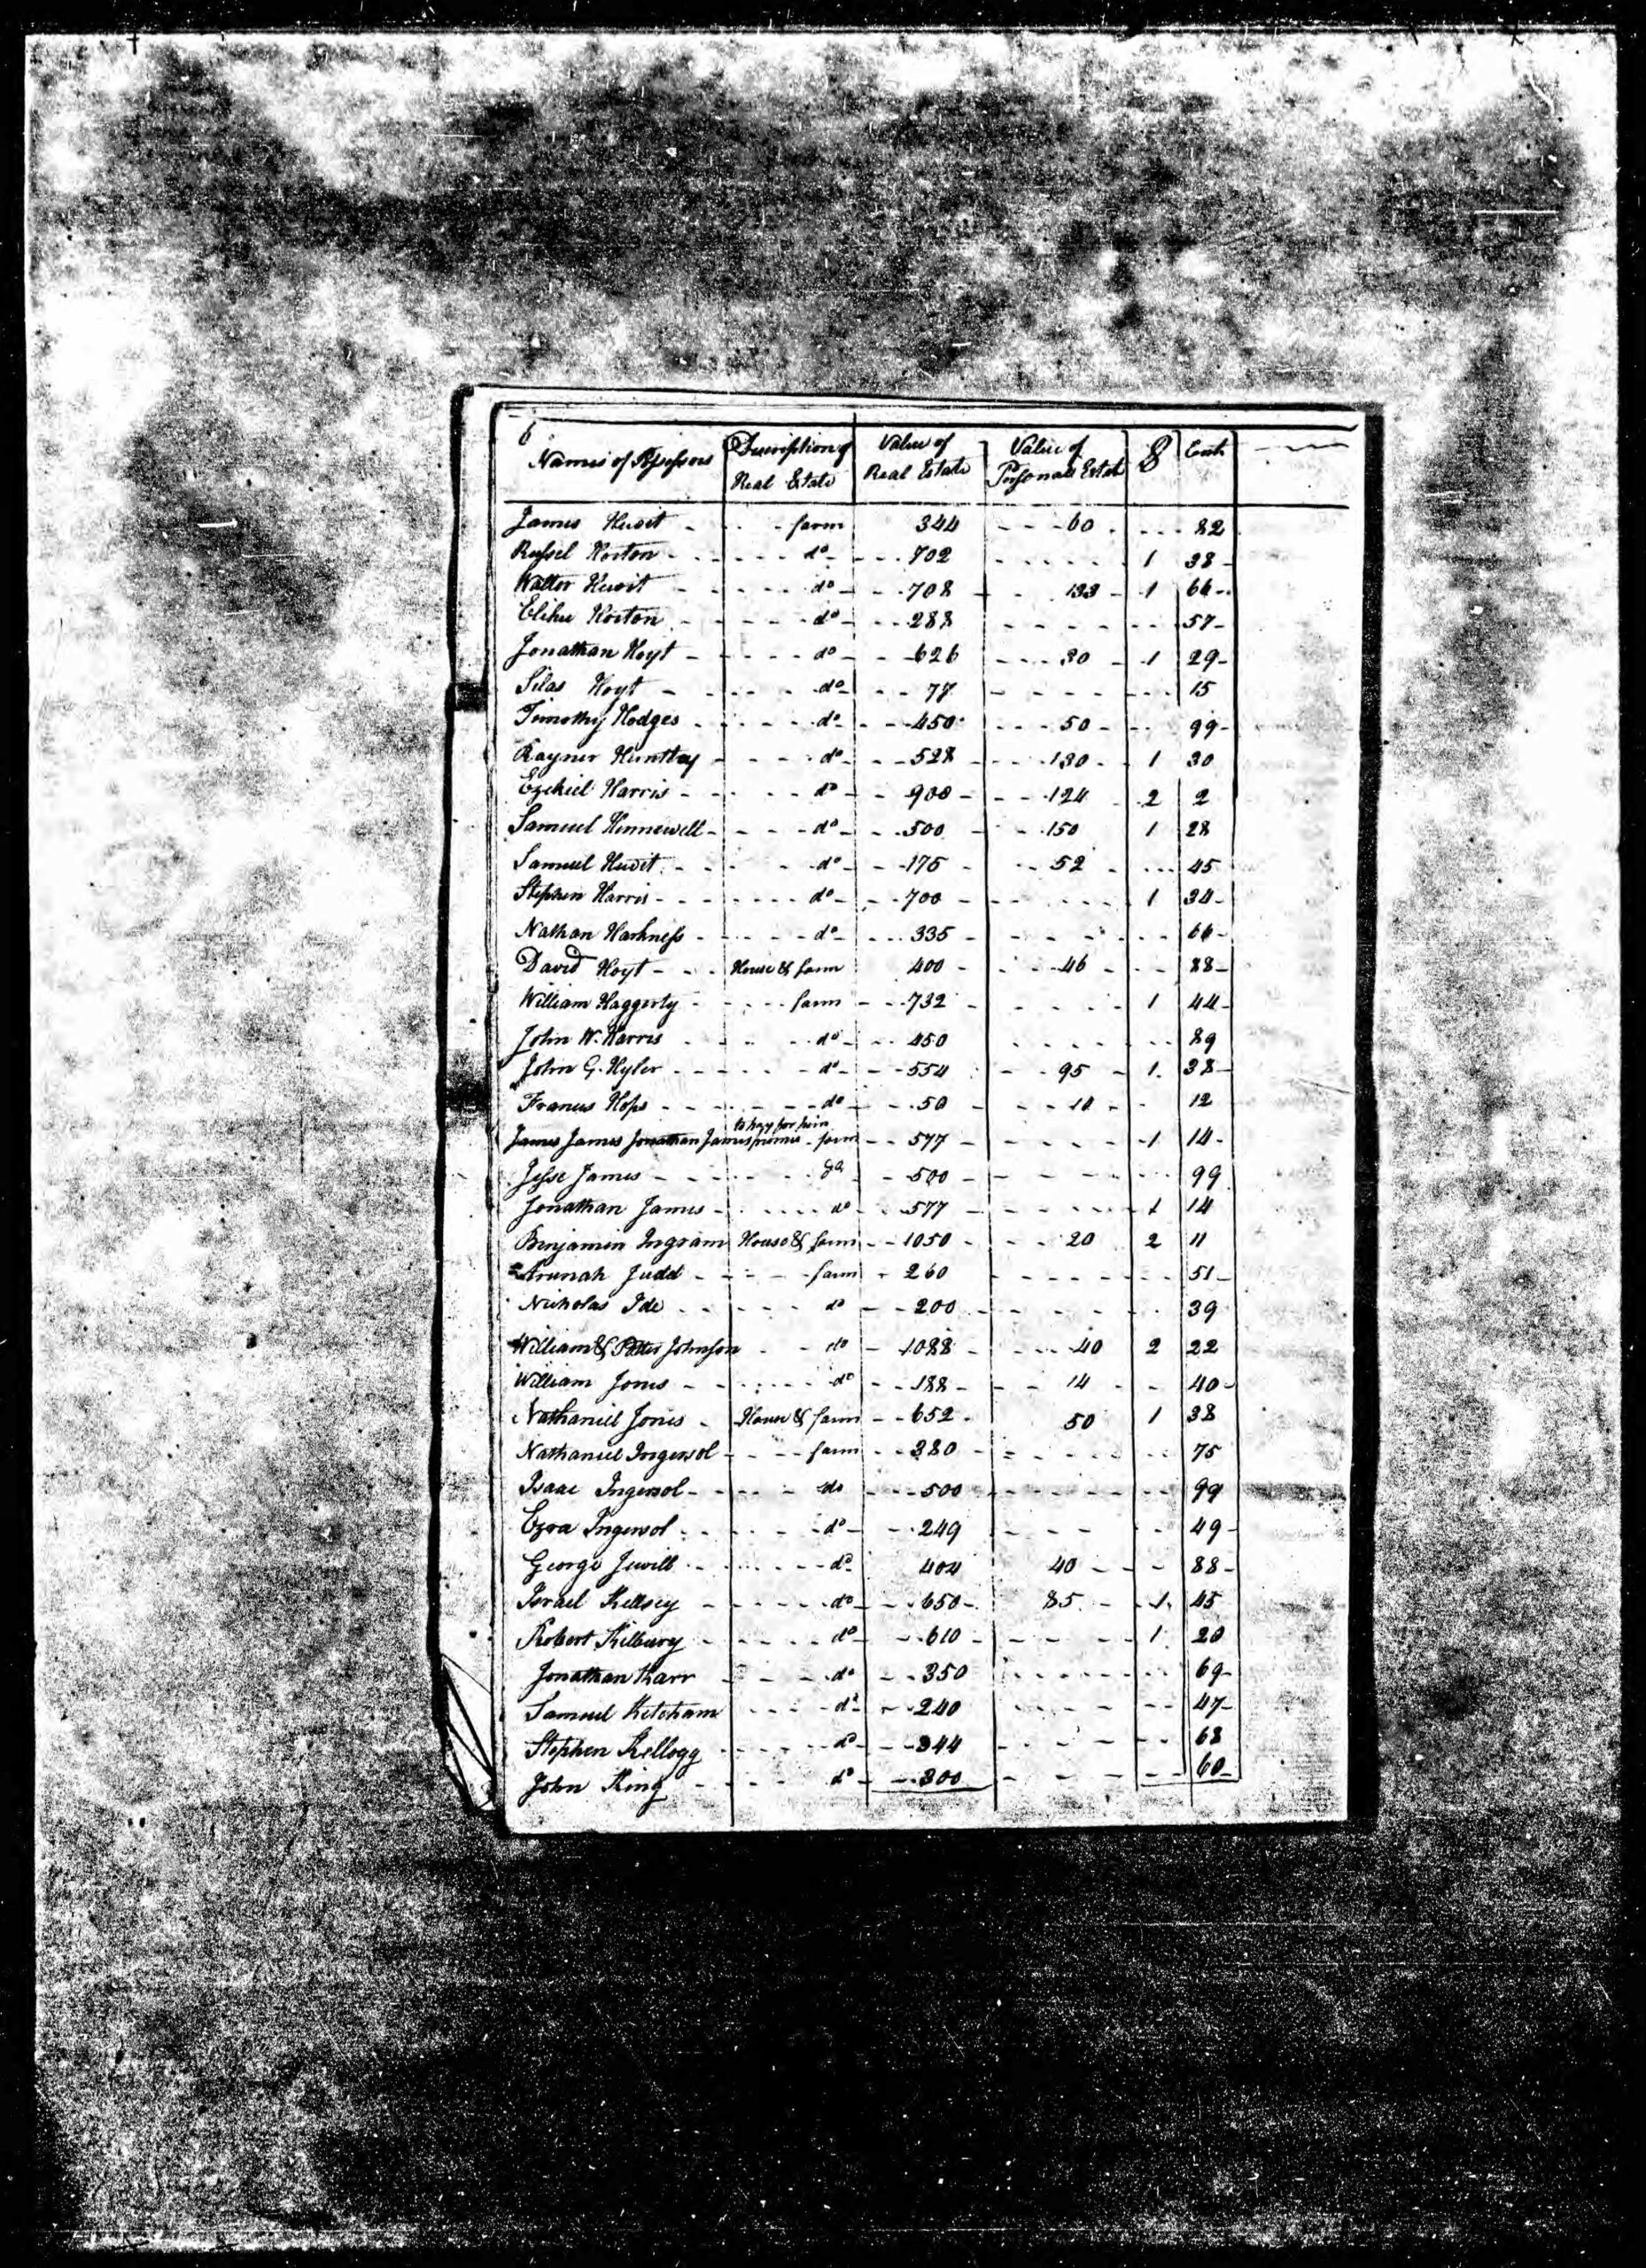 6
Names of Possessors Description of Real Estate Value of Real Estate Value of Personal Estate $ Cents
James Hewit - - - farm 344 - - - 60 - - - - 82
Russel Horton - - - - - - do - - - - 702 - - - - - 1 38 -
Walter Hewit - - - - - do - - - 708 - - 133 - 1 66 -
Elihu Horton - - - - - do - - - 288 - - - - - - - 57 -
Jonathan Hoyt - - - - - do - - - 626 - - - 30 - 1 29 -
Silas Hoyt - - - - - do - - - 77 - - - - - - - 15
Timothy Hodges - - - - - do - - - 450 - - - 50 - - - 99 -
Rayner Huntley - - - - do - - - 528 - - - 130 - 1 30
Ezekiel Harris - - - - - do - - 900 - - - 124 - 2 2
Samuel Hinnewell - - - - do - - - 500 - - 150 1 28
Samuel Hewit - - - - do - - - 175 - - - 52 - - - - 45
Stephen Harris - - - - - - - do - - - 700 - - - - - - 1 34 -
Nathan Harkness - - - - - do - - - - 335 - - - - - - - 66 -
David Hoyt - - - House & farm 400 - - - 46 - - - 88 -
William Haggerty - - - - farm - - 732 - - - - - 1 44 -
John W. Harris - - - - do - - - 450 - - - - - - - 89
John G. Hyler - - - - - - do - - - 554 - - 95 - 1 38 -
Francis Hops - - - - - - do - - 50 - - - 10 - - 12
to pay for him
James James Jonathan James farm - - 577 - - - - - 1 14 -
Jesse James - - - - - - do - 500 - - - - - - - 99
Jonathan James - - - - - do - - 577 - - - - - - 1 14
Benjamin Ingram House & farm - - 1050 - - - 20 2 11
Arunah Judd - - - - farm - 260 - - - - - - - 51 -
Nicholas Ide - - - - - do - - 200 - - - - - - 39
William & Peter Johnson - - do - 1088 - - - - 40 2 22
William Jones - - - - - - do - - 188 - - - 14 - - 40 -
Nathaniel Jones - House & farm - - 652 - 50 1 38
Nathaniel Ingersol - - - farm - - 380 - - - - - - - 75
Isaac Ingersol - - - - - do - - - 500 - - - - - - - 99
Ezra Ingersol - - - - - do - - - 249 - - - - - 49 -
George Jewill - - - - - - do - 404 40 - - - 88 -
Israel Kellsey - - - - - - do - - - 650 - 85 - - 1 45
Robert Kilbury - - - - - do - - - 610 - - - - - 1 20
Jonathan Karr - - - - do - - - 350 - - - - - - - 69 -
Samuel Ketcham - - - - do - - - 240 - - - - - - 47 -
Stephen Kellogg - - - - - do - - - 344 - - - - - - 68
John King - - - - do - - - 300 - - - - - - 60 -